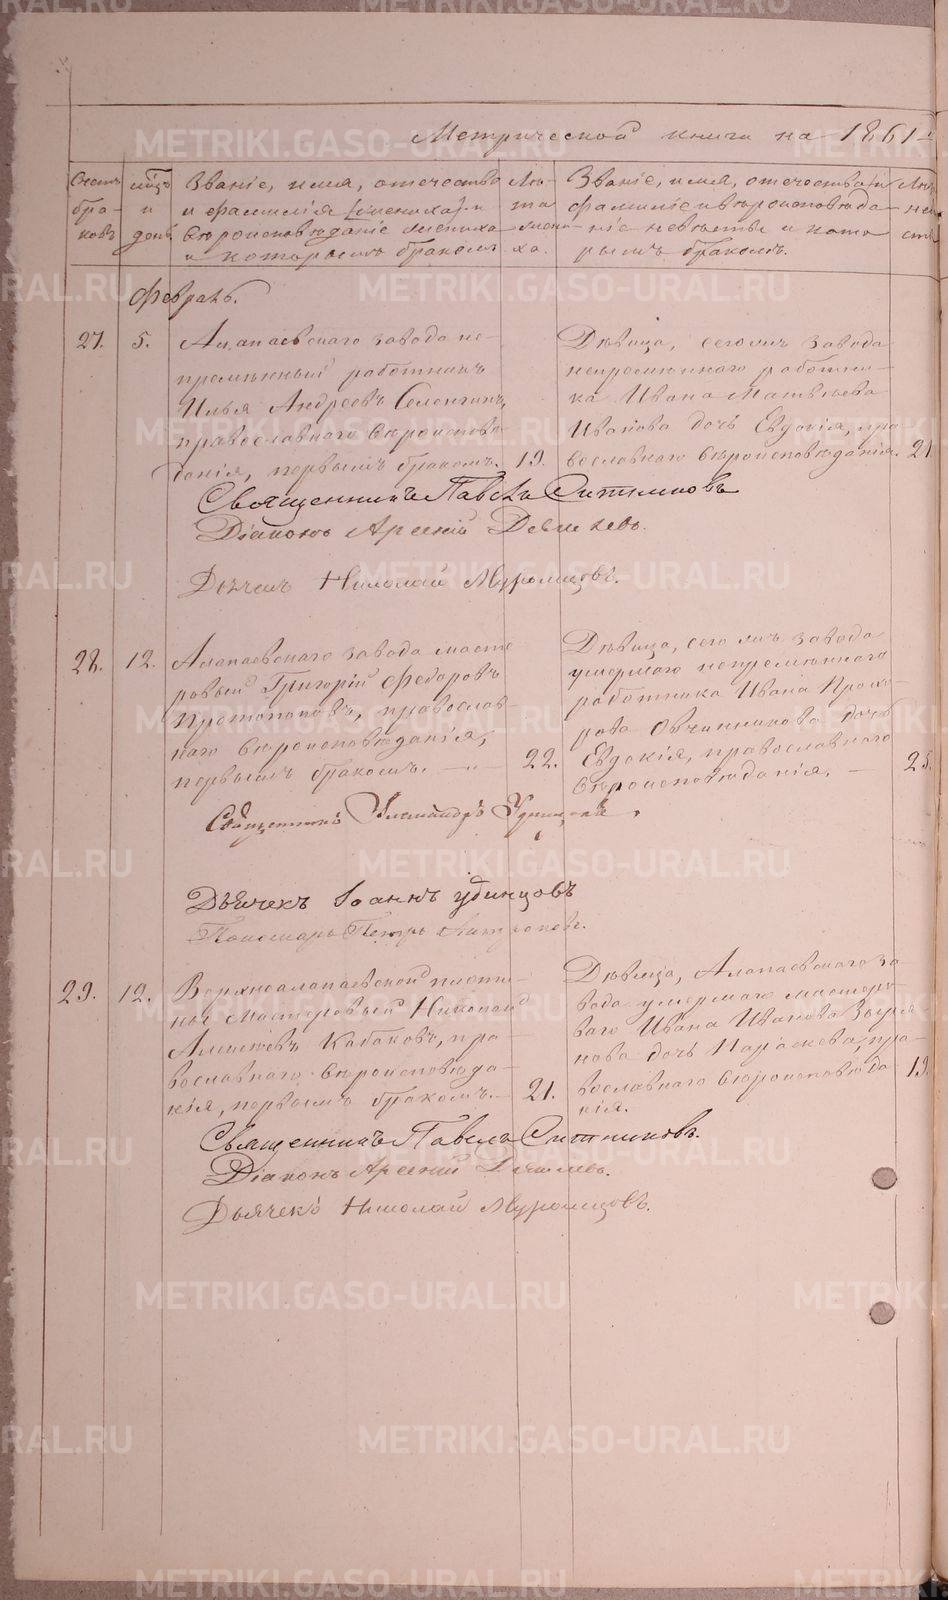 Метрической книги на 1861 г
Счетъ браковъ
мѣсяцъ и день
Званіе, имя, отечество
и фамилія [жениха] и
вѣроисповѣданіе жениха
и которымъ бракомъ
Лѣта жениха.
Званіе, имя, отечество и
фамилію и вѣроисповѣда-
ніе невѣсты и кото
рымъ бракомъ.
Февраль.
27. 5.
Алапаевскаго завода не-
премѣнный работникъ
Илья Андреевъ
православнаго вѣроисповѣ
данія, первымъ бракомъ. 19.
Дѣвица, сего жъ завода
непремѣннаго работни-
ка Ивана Матвѣева
Иванова дочь Евдокія, пра-
вославнаго вѣроисповѣданія. 21
Священникъ Павелъ Ситниковъ
Діаконъ Арсеній
Дьячекъ Николай Муромцовъ.
28. 12.
Алапаевскаго завода масте
ровый Григорій Федоровъ
Протопоповъ, православ-
наго вѣроисповѣданія,
первымъ бракомъ. 22.
Дѣвица, сего жъ завода
умершаго непремѣннаго
работника Ивана Прохо-
рова Овчинникова дочь
Евдокія, православнаго
вѣроисповѣданія. 25.
Священникъ Александръ Удинцовъ
Дьячекъ Іоаннъ Удинцовъ
Пономарь Петръ
29. 12.
Верхнеалапаевской плоти-
ны Мастеровый Николай
Алексѣевъ Кабаковъ, пра-
вославнаго вѣроисповѣда-
нія, первымъ бракомъ. 21.
Дѣвица, Алапаевскаго за-
вода умершаго мастеро-
ваго Ивана Иванова Зыря
нова дочь Параскева, пра-
вославнаго вѣроисповѣда 19.
нія.
Священникъ Павелъ Ситниковъ.
Діаконъ Арсеній
Дьячекъ Николай Муромцовъ.
METRIKI.GASO-URAL.RU